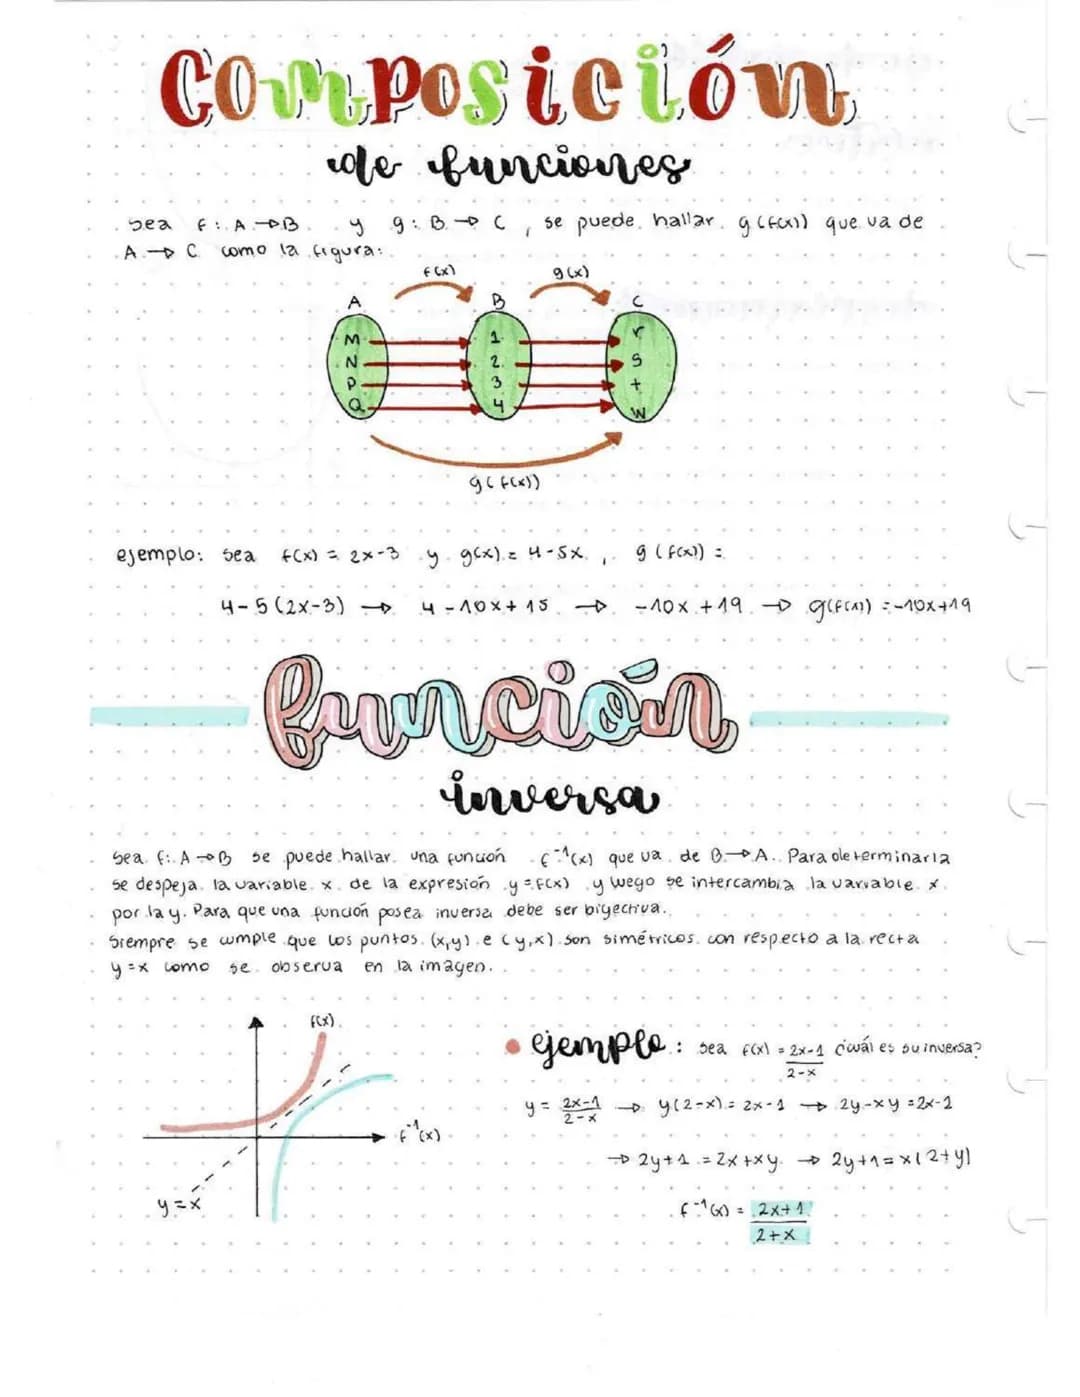 Composición
de funciones
Sea f: A → B y g: B → C, se puede hallar g(f(x)) que va de
A → C como la figura:
f(x) g(x)
A B C
M 1 r
N 2 s
P 3 t
Q 4 w
g(f(x))
ejemplo: sea f(x) = 2x-3 y g(x) = 4-5x, g(f(x)) =
4-5(2x-3) → 4-10x+15 → -10x+19 → g(f(x)) = -10x+19
función
inversa
Sea f: A → B se puede hallar una función f⁻¹(x) que va de B → A. Para determinarla
se despeja la variable x de la expresión y=f(x) y luego se intercambia la variable x
por la y. Para que una función posea inversa debe ser biyectiva.
Siempre se cumple que los puntos (x,y) e (y,x) son simétricos con respecto a la recta
y=x como se observa en la imagen.
f(x)
f⁻¹(x)
y=x
ejemplo: sea f(x) = 2x-1 ¿cuál es su inversa?
2-x
y = 2x-1 → y(2-x) = 2x-1 → 2y-xy = 2x-1
2-x
→ 2y+1 = 2x+xy → 2y+1 = x(2+y)
f⁻¹(x) = 2x+1
2+x